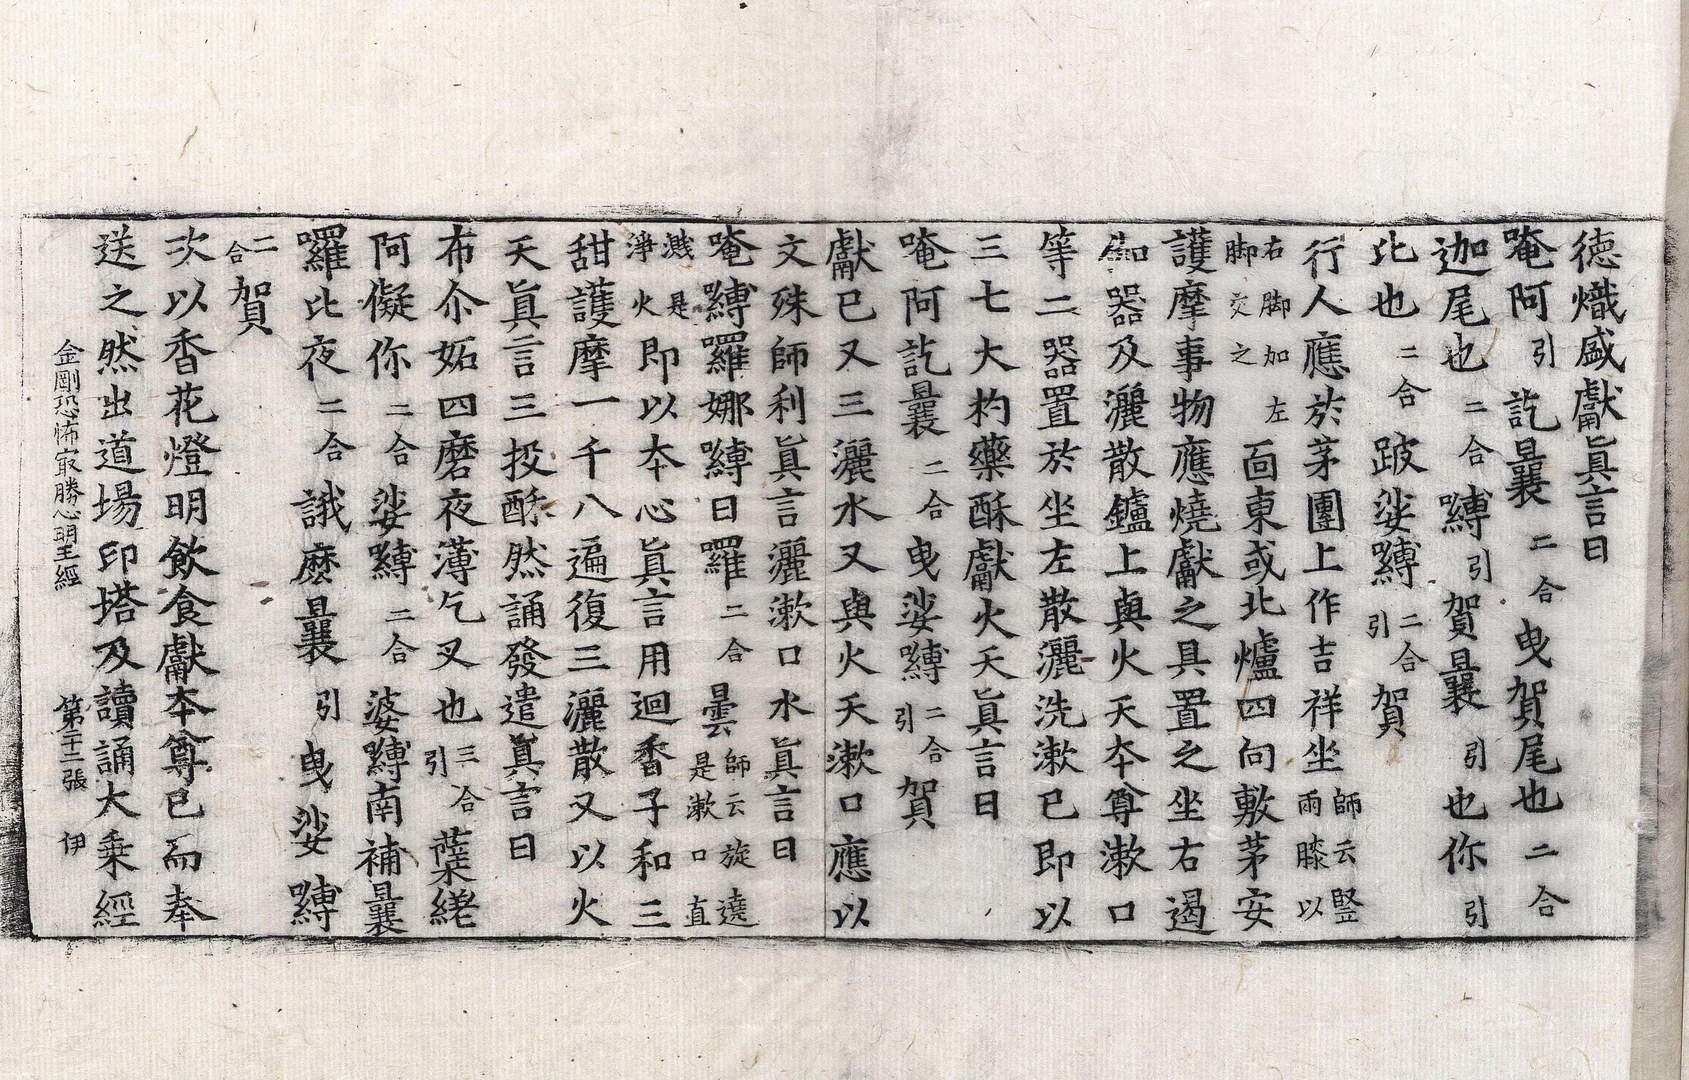 德熾盛獻眞言曰
唵阿引訖曩二合曳賀尾也二合
迦尾也二合嚩引賀曩引也你引
比也二合跛娑嚩二合引賀
行人應於茅團上作吉祥坐師云竪兩膝以
右脚加左脚交之面東或北爐四向敷茅安
護摩事物應燒獻之具置之坐右遏
伽器及灑散鑪上與火天夲尊漱口
等二器置於坐左散灑洗漱已即以
三七大杓藥酥獻火天眞言曰
唵阿訖曩二合曳娑嚩二合引賀
獻已又三灑水又與火天漱口應以
文殊師利眞言灑漱口水眞言曰
唵嚩囉娜嚩日囉二合曇師云旋遶是漱口直
濺是淨火即以夲心眞言用迴香子和三
甜護摩一千八遍復三灑散又以火
天眞言三投酥然誦發遣眞言曰
布尒妬四磨夜薄乞叉也三合引蘖綣
阿儗你二合娑嚩二合婆嚩南補曩
囉比夜二合誐麽曩引曳娑嚩
二合賀
次以香花燈明飲食獻夲尊已而奉
送之然出道場印塔及讀誦大乗經
金剛恐怖㝡勝心明王經 第二十二張 伊